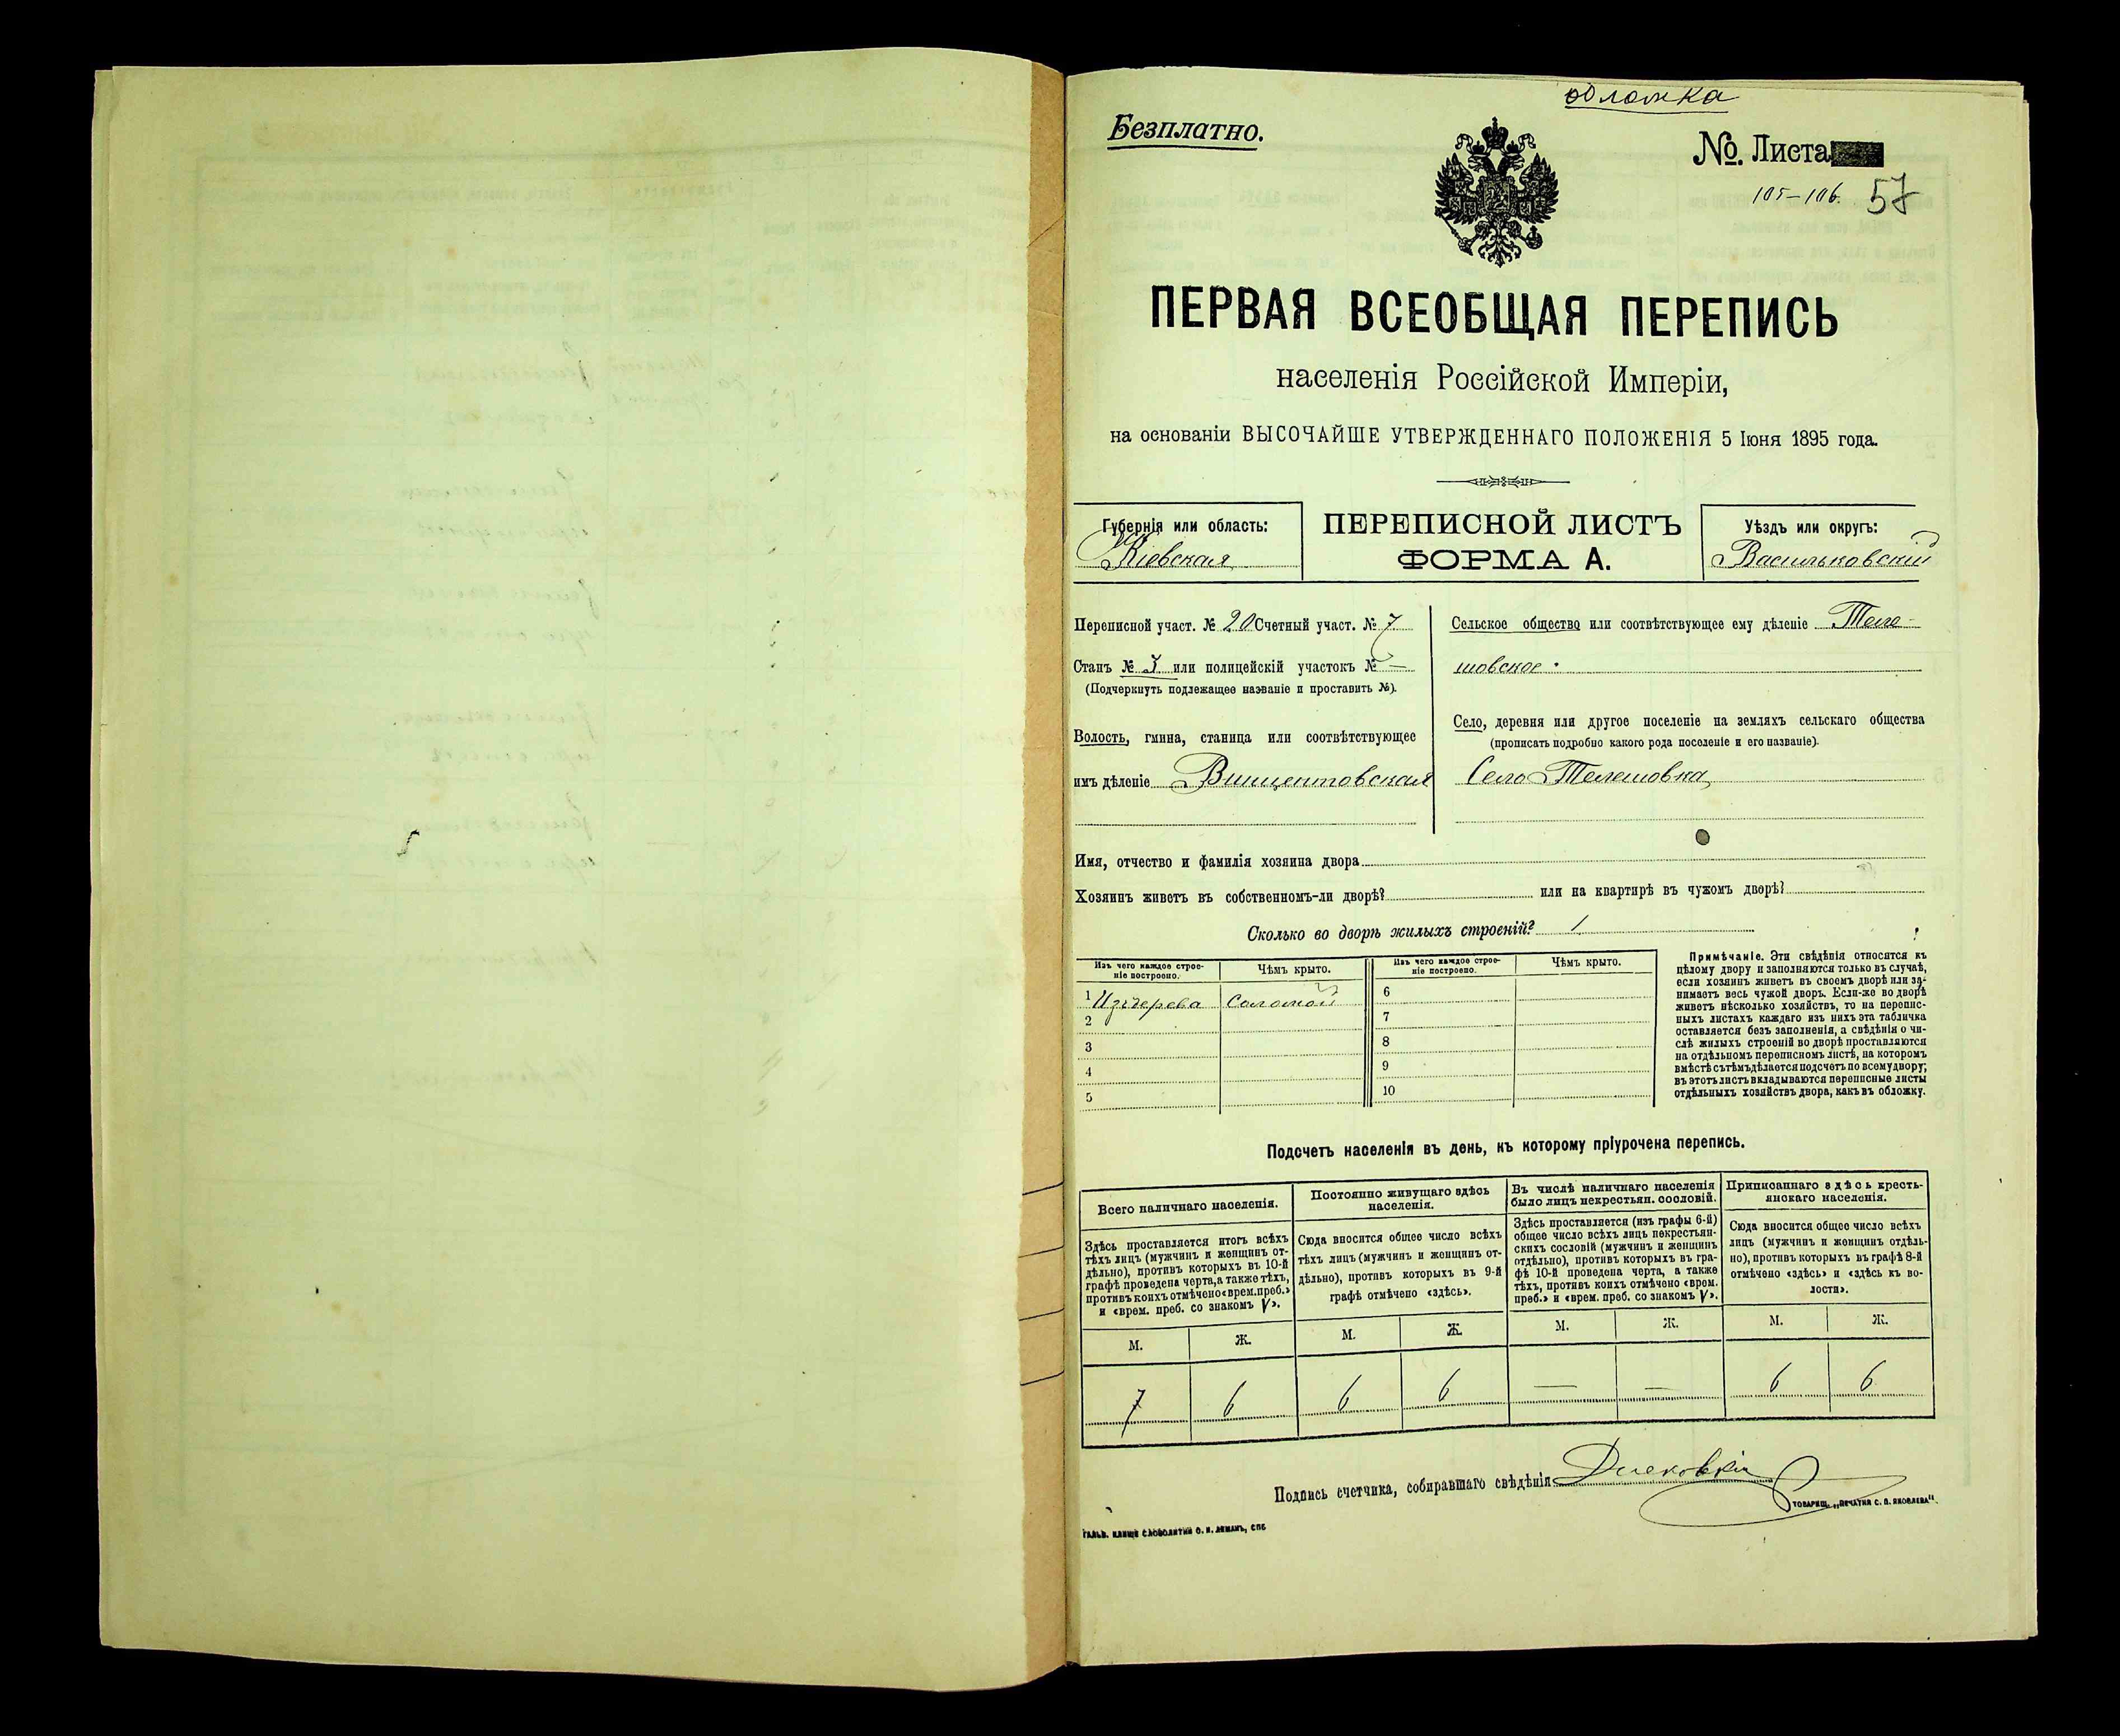 обложка
Безплатно.
№. Листа
105-106. 57
ПЕРВАЯ ВСЕОБЩАЯ ПЕРЕПИСЬ
населенія Россійской Имперіи,
на основаніи ВЫСОЧАЙШЕ УТВЕРЖДЕННАГО ПОЛОЖЕНІЯ 5 Іюня 1895 года.
Губернія или область:
Кіевская
ПЕРЕПИСНОЙ ЛИСТЪ
ФОРМА А.
Уѣздъ или округъ:
Васильковскій
Переписной участ. № 20 Счетный участ. № 7
Станъ № или полицейскій участокъ № —
(Подчеркнуть подлежащее названіе и проставить №).
Волость, гмина, станица или соотвѣтствующее
имъ дѣленіе Винцентовская
Сельское общество или соотвѣтствующее ему дѣленіе Теле-
шовское.
Село, деревня или другое поселеніе на земляхъ сельскаго общества
(прописать подробно какого рода поселеніе и его названіе).
Село Телешовка
Имя, отчество и фамилія хозяина двора
Хозяинъ живетъ въ собственномъ-ли дворѣ? или на квартирѣ въ чужомъ дворѣ?
Сколько во дворѣ жилыхъ строеній? 1
Изъ чего каждое строе-
ніе построено.
Чѣмъ крыто.
Изъ чего каждое строе-
ніе построено.
Чѣмъ крыто.
1 Изъ дерева Соломой
2
3
4
5
6
7
8
9
10
Примѣчаніе. Эти свѣдѣнія относятся къ
цѣлому двору и заполняются только въ случаѣ,
если хозяинъ живетъ въ своемъ дворѣ или за-
нимаетъ весь чужой дворъ. Если-же во дворѣ
живетъ нѣсколько хозяйствъ, то на перепис-
ныхъ листахъ каждаго изъ нихъ эта табличка
оставляется безъ заполненія, а свѣдѣнія о чи-
слѣ жилыхъ строеній во дворѣ проставляются
на отдѣльномъ переписномъ листѣ, на которомъ
вмѣстѣ съ тѣмъ дѣлается подсчетъ по всему двору;
въ этотъ листъ вкладываются переписные листы
отдѣльныхъ хозяйствъ двора, какъ въ обложку.
Подсчетъ населенія въ день, къ которому пріурочена перепись.
Всего наличнаго населенія.
Здѣсь проставляется итогъ всѣхъ
тѣхъ лицъ (мужчинъ и женщинъ от-
дѣльно), противъ которыхъ въ 10-й
графѣ проведена черта, а также тѣхъ,
противъ коихъ отмѣчено «врем. преб.»
и «врем. преб. со знакомъ V».
М. Ж.
7 6
Постоянно живущаго здѣсь
населенія.
Сюда вносится общее число всѣхъ
тѣхъ лицъ (мужчинъ и женщинъ от-
дѣльно), противъ которыхъ въ 9-й
графѣ отмѣчено «здѣсь».
М. Ж.
6 6
Въ числѣ наличнаго населенія
было лицъ некрестьян. сословій.
Здѣсь проставляется (изъ графы 6-й)
общее число всѣхъ лицъ некрестьян-
скихъ сословій (мужчинъ и женщинъ
отдѣльно), противъ которыхъ въ гра-
фѣ 10-й проведена черта, а также
тѣхъ, противъ коихъ отмѣчено «врем.
преб.» и «врем. преб. со знакомъ V».
М. Ж.
— —
Приписаннаго здѣсь кресть-
янскаго населенія.
Сюда вносится общее число всѣхъ
лицъ (мужчинъ и женщинъ отдѣль-
но), противъ которыхъ въ графѣ 8-й
отмѣчено «здѣсь» и «здѣсь къ во-
лости».
М. Ж.
6 6
Подпись счетчика, собиравшаго свѣдѣнія
ТОВАРИЩ. „ПЕЧАТНЯ С. П. ЯКОВЛЕВА".
ГАЛЬВ. КЛИШЕ СЛОВОЛИТНИ О. И. ЛЕМАНЪ, СПБ